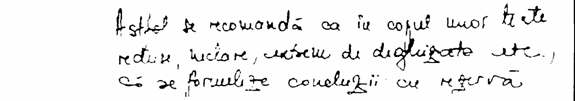 Astfel se recomandă ca în copul unor texte
reduse, neclare, extrem de deghizate etc.,
să se formuleze concluzii cu rezervă